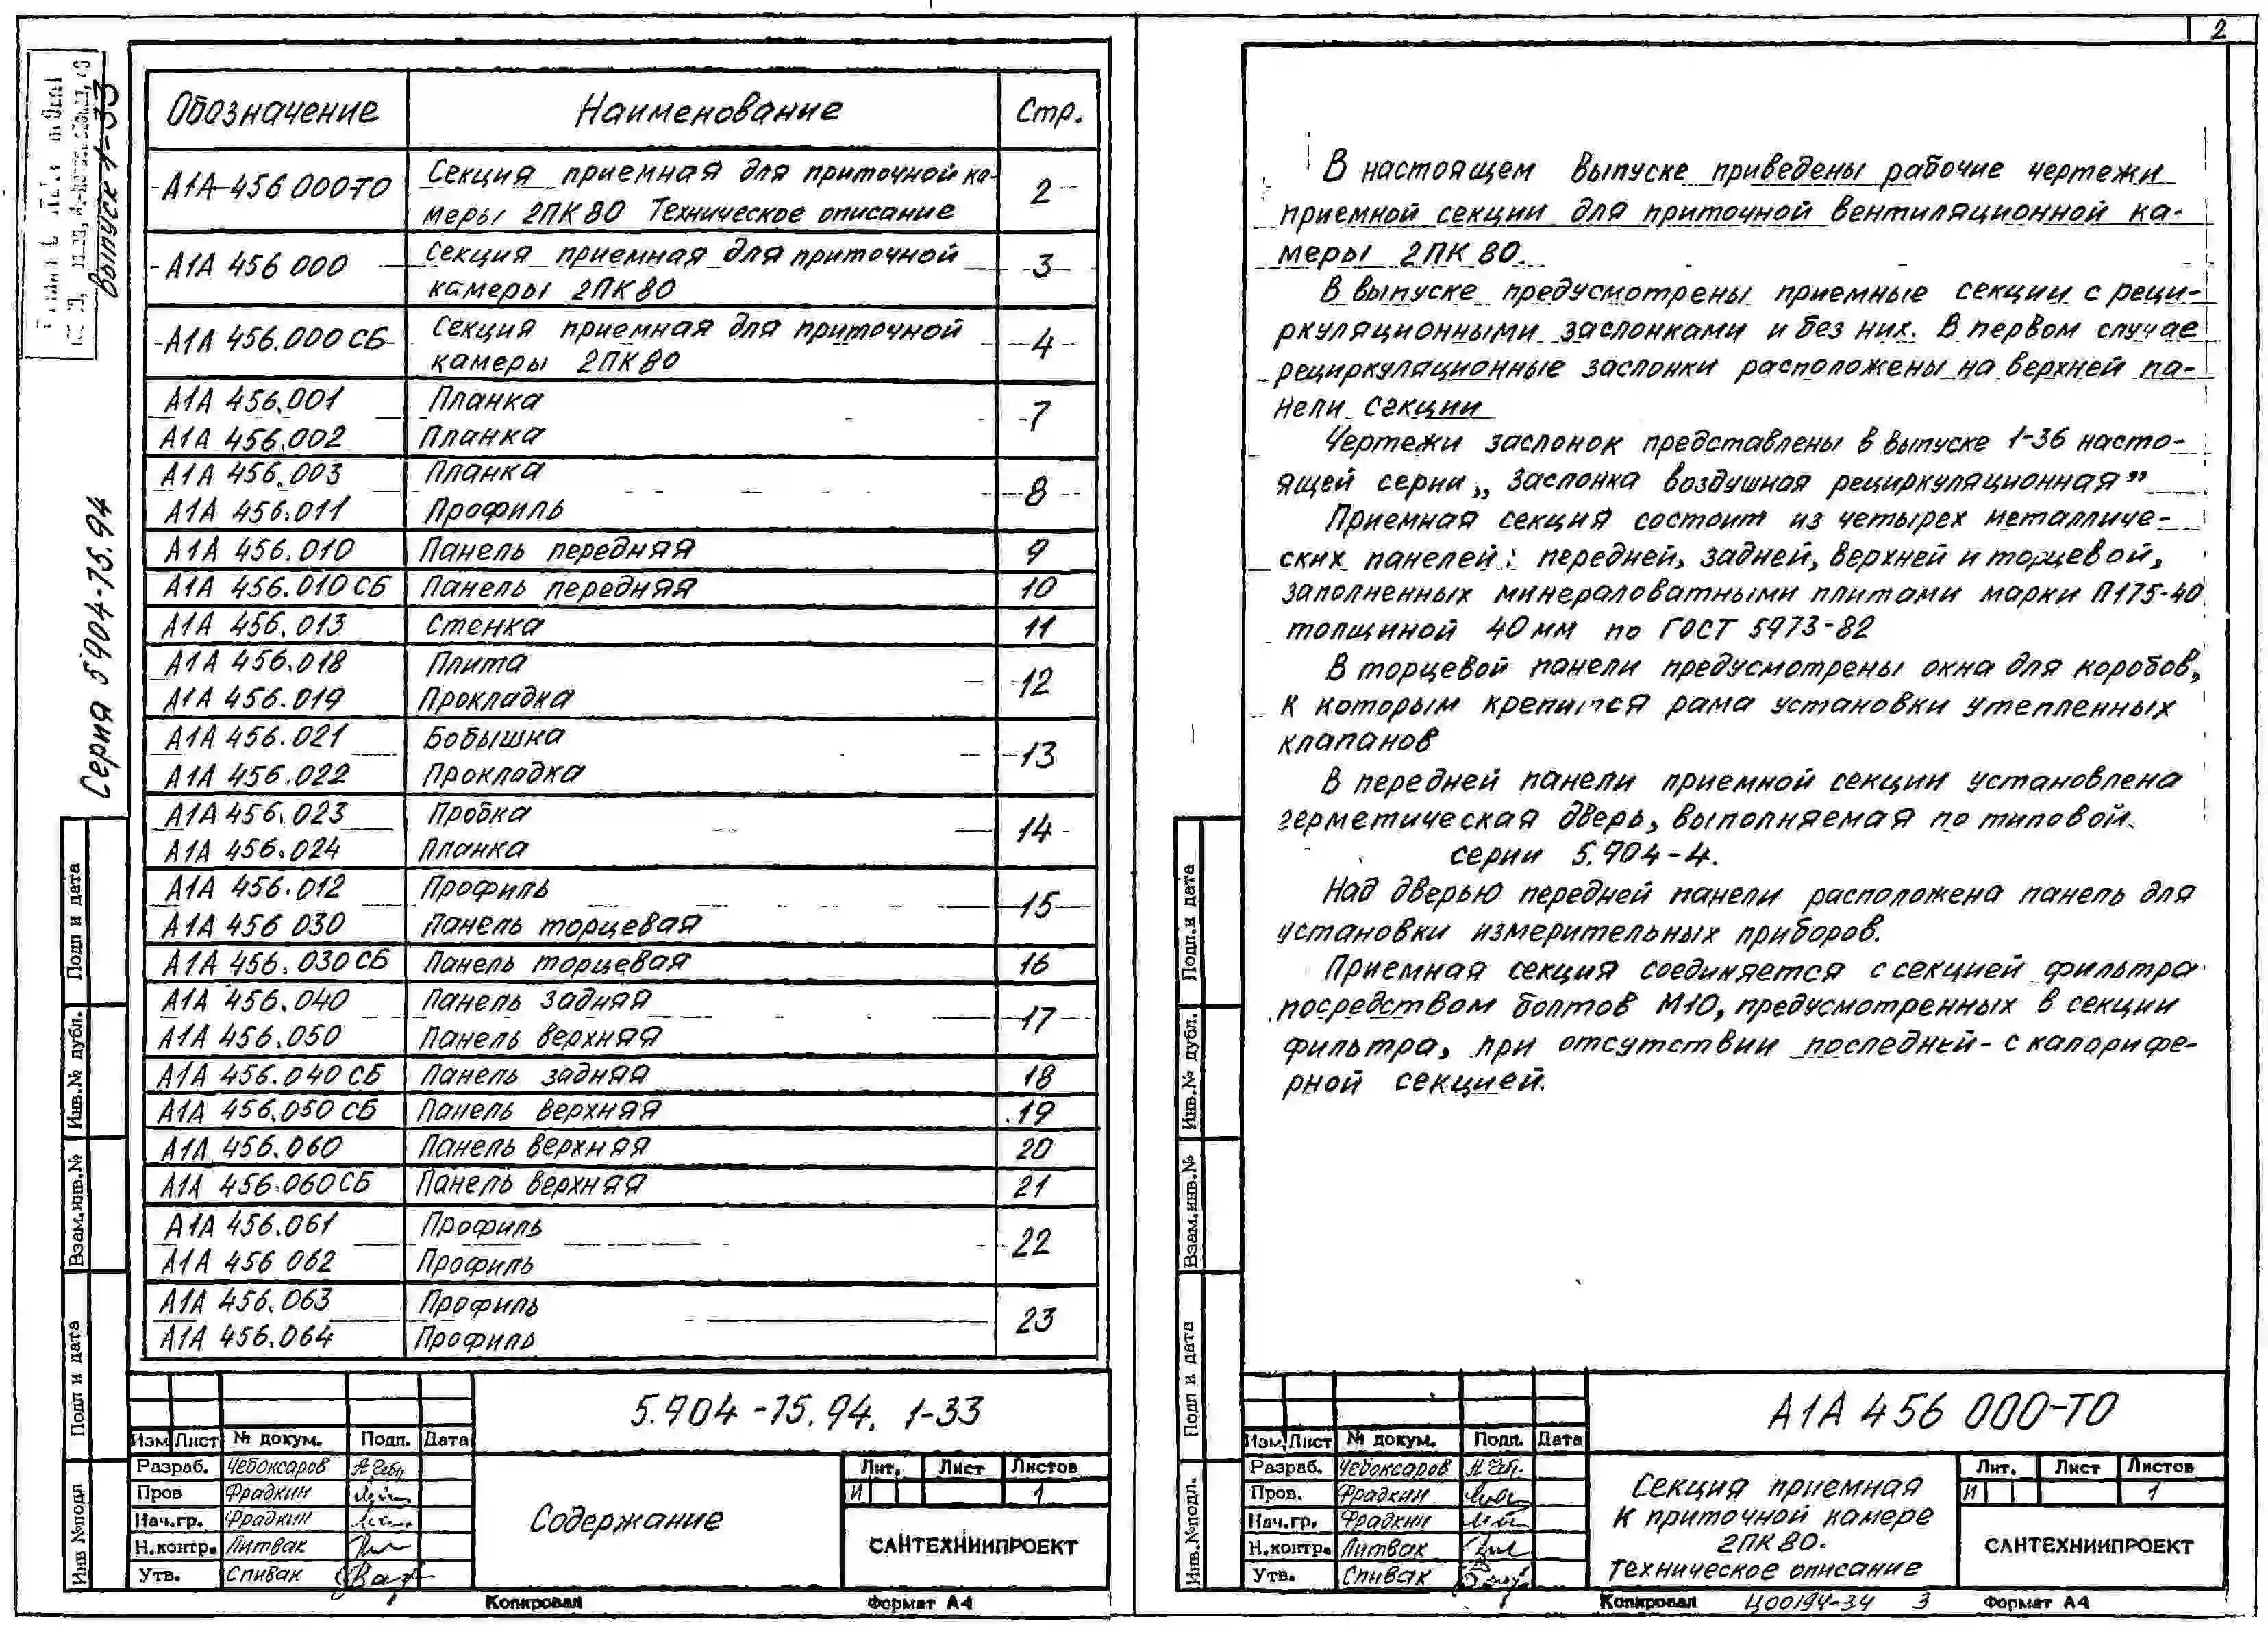 выпуск 1-33
Серия 5.904-75.94
Обозначение Наименование Стр.
А1А 456 000-ТО Секция приемная для приточной ка-
меры 2ПК80 Техническое описание 2
А1А 456 000 Секция приемная для приточной
камеры 2ПК80 3
А1А 456.000 СБ Секция приемная для приточной
камеры 2ПК80 4
А1А 456.001 Планка 7
А1А 456.002 Планка
А1А 456.003 Планка 8
А1А 456.011 Профиль
А1А 456.010 Панель передняя 9
А1А 456.010 СБ Панель передняя 10
А1А 456.013 Стенка 11
А1А 456.018 Плита 12
А1А 456.019 Прокладка
А1А 456.021 Бобышка 13
А1А 456.022 Прокладка
А1А 456.023 Пробка 14
А1А 456.024 Планка
А1А 456.012 Профиль 15
А1А 456 030 Панель торцевая
А1А 456.030 СБ Панель торцевая 16
А1А 456.040 Панель задняя 17
А1А 456.050 Панель верхняя
А1А 456.040 СБ Панель задняя 18
А1А 456.050 СБ Панель верхняя 19
А1А 456.060 Панель верхняя 20
А1А 456.060 СБ Панель верхняя 21
А1А 456.061 Профиль 22
А1А 456 062 Профиль
А1А 456.063 Профиль 23
А1А 456.064 Профиль
Подп и дата
Инв.№ дубл.
Взам.инв.№
Подп и дата
Инв №подл
5.904-75.94. 1-33
Изм Лист № докум. Подп. Дата
Разраб. Чебоксаров
Пров Фрадкин
Нач.гр. Фрадкин
Н.контр. Литвак
Утв. Спивак
Содержание
Лит. Лист Листов
И 1
САНТЕХНИИПРОЕКТ
Копировал Формат А4
2
В настоящем выпуске приведены рабочие чертежи
приемной секции для приточной вентиляционной ка-
меры 2ПК 80.
В выпуске предусмотрены приемные секции с реци-
ркуляционными заслонками и без них. В первом случае
рециркуляционные заслонки расположены на верхней па-
нели секции
Чертежи заслонок представлены в выпуске 1-36 насто-
ящей серии „Заслонка воздушная рециркуляционная”
Приемная секция состоит из четырех металличе-
ских панелей: передней, задней, верхней и торцевой,
заполненных минераловатными плитами марки П175-40
толщиной 40мм по ГОСТ 5973-82
В торцевой панели предусмотрены окна для коробов,
к которым крепится рама установки утепленных
клапанов
В передней панели приемной секции установлена
герметическая дверь, выполняемая по типовой
серии 5.904-4.
Над дверью передней панели расположена панель для
установки измерительных приборов.
Приемная секция соединяется с секцией фильтра
посредством болтов М10, предусмотренных в секции
фильтра, при отсутствии последней - с калорифе-
рной секцией.
Подп.и дата
Инв.№ дубл.
Взам.инв.№
Подп и дата
Инв.№подл.
А1А 456 000-ТО
Изм. Лист № докум. Подп. Дата
Разраб. Чебоксаров
Пров. Фрадкин
Нач.гр. Фрадкин
Н.контр. Литвак
Утв. Спивак
Секция приемная
к приточной камере
2ПК 80.
Техническое описание
Лит. Лист Листов
И 1
САНТЕХНИИПРОЕКТ
Копировал Ц00194-34 3 Формат А4